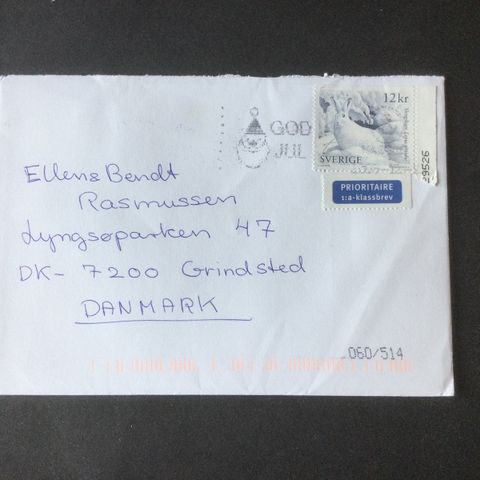 GOD
JUL
12kr
SVERIGE
PRIORITAIRE
1:a-klassbrev
29526
Ellens Bendt
Rasmussen
Lyngsøparken 47
DK- 7200 Grindsted
DANMARK
060/514